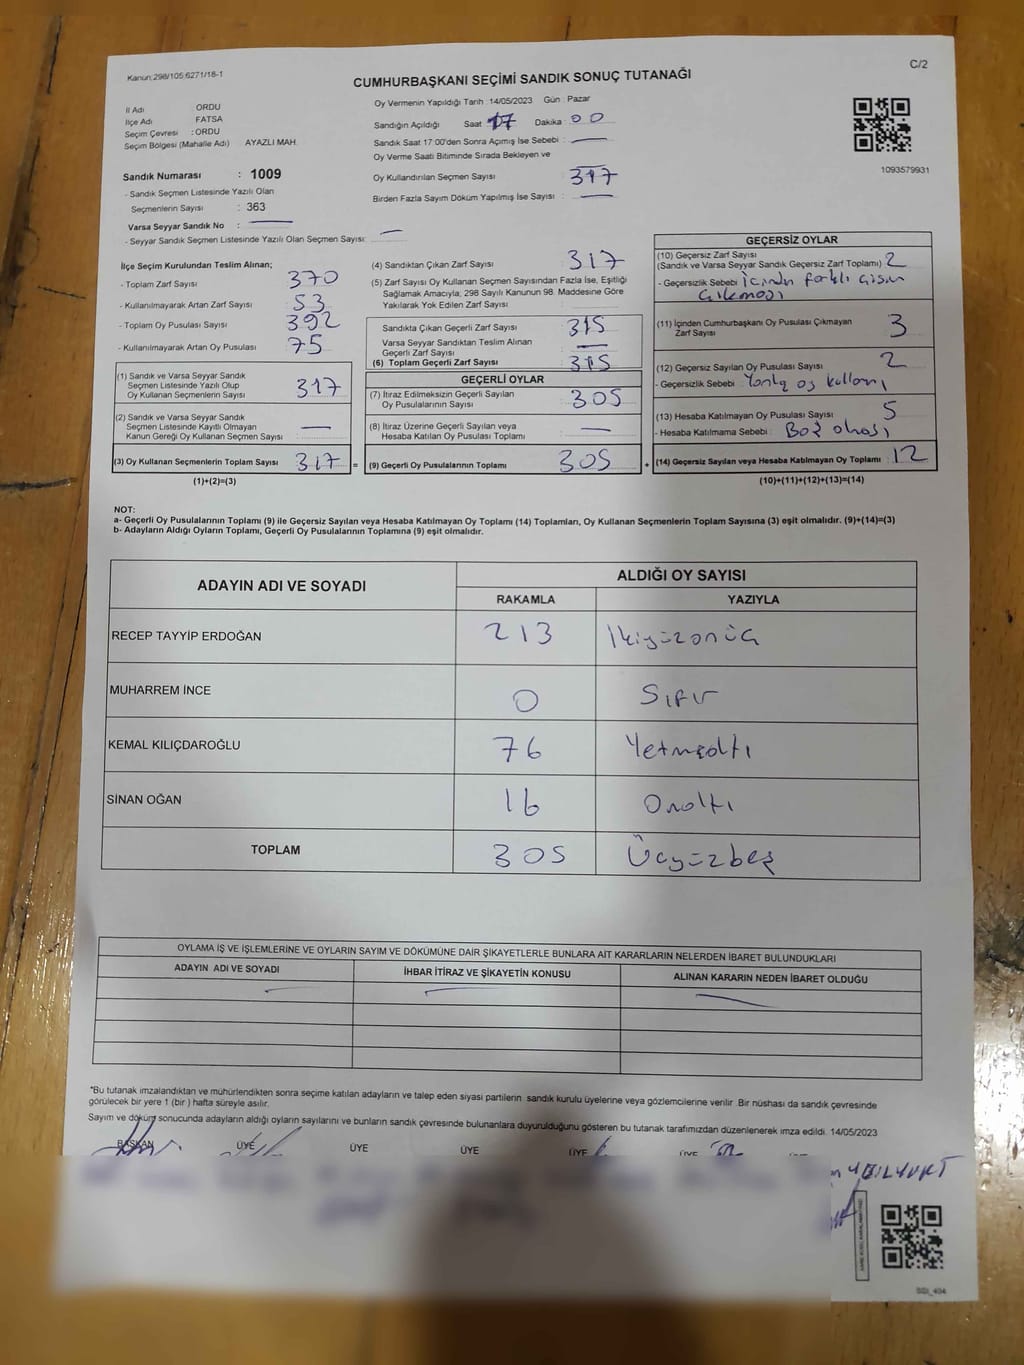 Kanun:298/105;6271/18-1
C/2
CUMHURBAŞKANI SEÇİMİ SANDIK SONUÇ TUTANAĞI
İl Adı : ORDU
İlçe Adı : FATSA
Seçim Çevresi : ORDU
Seçim Bölgesi (Mahalle Adı) AYAZLI MAH.
Oy Vermenin Yapıldığı Tarih : 14/05/2023 Gün : Pazar
Sandığın Açıldığı Saat 17 Dakika : 00
Sandık Saat 17:00'den Sonra Açımış İse Sebebi :
Oy Verme Saati Bitiminde Sırada Bekleyen ve
Oy Kullandırılan Seçmen Sayısı 317
Birden Fazla Sayım Döküm Yapılmış İse Sayısı :
1093579931
Sandık Numarası : 1009
- Sandık Seçmen Listesinde Yazılı Olan
Seçmenlerin Sayısı : 363
Varsa Seyyar Sandık No :
- Seyyar Sandık Seçmen Listesinde Yazılı Olan Seçmen Sayısı:
İlçe Seçim Kurulundan Teslim Alınan;
- Toplam Zarf Sayısı 370
- Kullanılmayarak Artan Zarf Sayısı 53
- Toplam Oy Pusulası Sayısı 392
- Kullanılmayarak Artan Oy Pusulası 75
(1) Sandık ve Varsa Seyyar Sandık
Seçmen Listesinde Yazılı Olup
Oy Kullanan Seçmenlerin Sayısı 317
(2) Sandık ve Varsa Seyyar Sandık
Seçmen Listesinde Kayıtlı Olmayan
Kanun Gereği Oy Kullanan Seçmen Sayısı :
(3) Oy Kullanan Seçmenlerin Toplam Sayısı : 317 =
(1)+(2)=(3)
(4) Sandıktan Çıkan Zarf Sayısı : 317
(5) Zarf Sayısı Oy Kullanan Seçmen Sayısından Fazla İse, Eşitliği
Sağlamak Amacıyla; 298 Sayılı Kanunun 98. Maddesine Göre
Yakılarak Yok Edilen Zarf Sayısı :
Sandıkta Çıkan Geçerli Zarf Sayısı : 315
Varsa Seyyar Sandıktan Teslim Alınan
Geçerli Zarf Sayısı :
(6) Toplam Geçerli Zarf Sayısı : 315
GEÇERLİ OYLAR
(7) İtiraz Edilmeksizin Geçerli Sayılan
Oy Pusulalarının Sayısı : 305
(8) İtiraz Üzerine Geçerli Sayılan veya
Hesaba Katılan Oy Pusulası Toplamı :
(9) Geçerli Oy Pusulalarının Toplamı : 305 +
GEÇERSİZ OYLAR
(10) Geçersiz Zarf Sayısı
(Sandık ve Varsa Seyyar Sandık Geçersiz Zarf Toplamı) 2
- Geçersizlik Sebebi : İçinden farklı cisim
çıkması
(11) İçinden Cumhurbaşkanı Oy Pusulası Çıkmayan
Zarf Sayısı 3
(12) Geçersiz Sayılan Oy Pusulası Sayısı : 2
- Geçersizlik Sebebi : Yanlış oy kullanı
(13) Hesaba Katılmayan Oy Pusulası Sayısı : 5
- Hesaba Katılmama Sebebi : Boş olması
(14) Geçersiz Sayılan veya Hesaba Katılmayan Oy Toplamı : 12
(10)+(11)+(12)+(13)=(14)
NOT:
a- Geçerli Oy Pusulalarının Toplamı (9) ile Geçersiz Sayılan veya Hesaba Katılmayan Oy Toplamı (14) Toplamları, Oy Kullanan Seçmenlerin Toplam Sayısına (3) eşit olmalıdır. (9)+(14)=(3)
b- Adayların Aldığı Oyların Toplamı, Geçerli Oy Pusulalarının Toplamına (9) eşit olmalıdır.
ADAYIN ADI VE SOYADI
ALDIĞI OY SAYISI
RAKAMLA YAZIYLA
RECEP TAYYİP ERDOĞAN 213 İkiyüzonüç
MUHARREM İNCE 0 Sıfır
KEMAL KILIÇDAROĞLU 76 Yetmişaltı
SİNAN OĞAN 16 Onaltı
TOPLAM 305 Üçyüzbeş
OYLAMA İŞ VE İŞLEMLERİNE VE OYLARIN SAYIM VE DÖKÜMÜNE DAİR ŞİKAYETLERLE BUNLARA AİT KARARLARIN NELERDEN İBARET BULUNDUKLARI
ADAYIN ADI VE SOYADI İHBAR İTİRAZ VE ŞİKAYETİN KONUSU ALINAN KARARIN NEDEN İBARET OLDUĞU
*Bu tutanak imzalandıktan ve mühürlendikten sonra seçime katılan adayların ve talep eden siyasi partilerin sandık kurulu üyelerine veya gözlemcilerine verilir. Bir nüshası da sandık çevresinde
görülecek bir yere 1 (bir ) hafta süreyle asılır.
Sayım ve döküm sonucunda adayların aldığı oyların sayılarını ve bunların sandık çevresinde bulunanlara duyurulduğunu gösteren bu tutanak tarafımızdan düzenlenerek imza edildi. 14/05/2023
BAŞKAN ÜYE ÜYE ÜYE ÜYE ÜYE